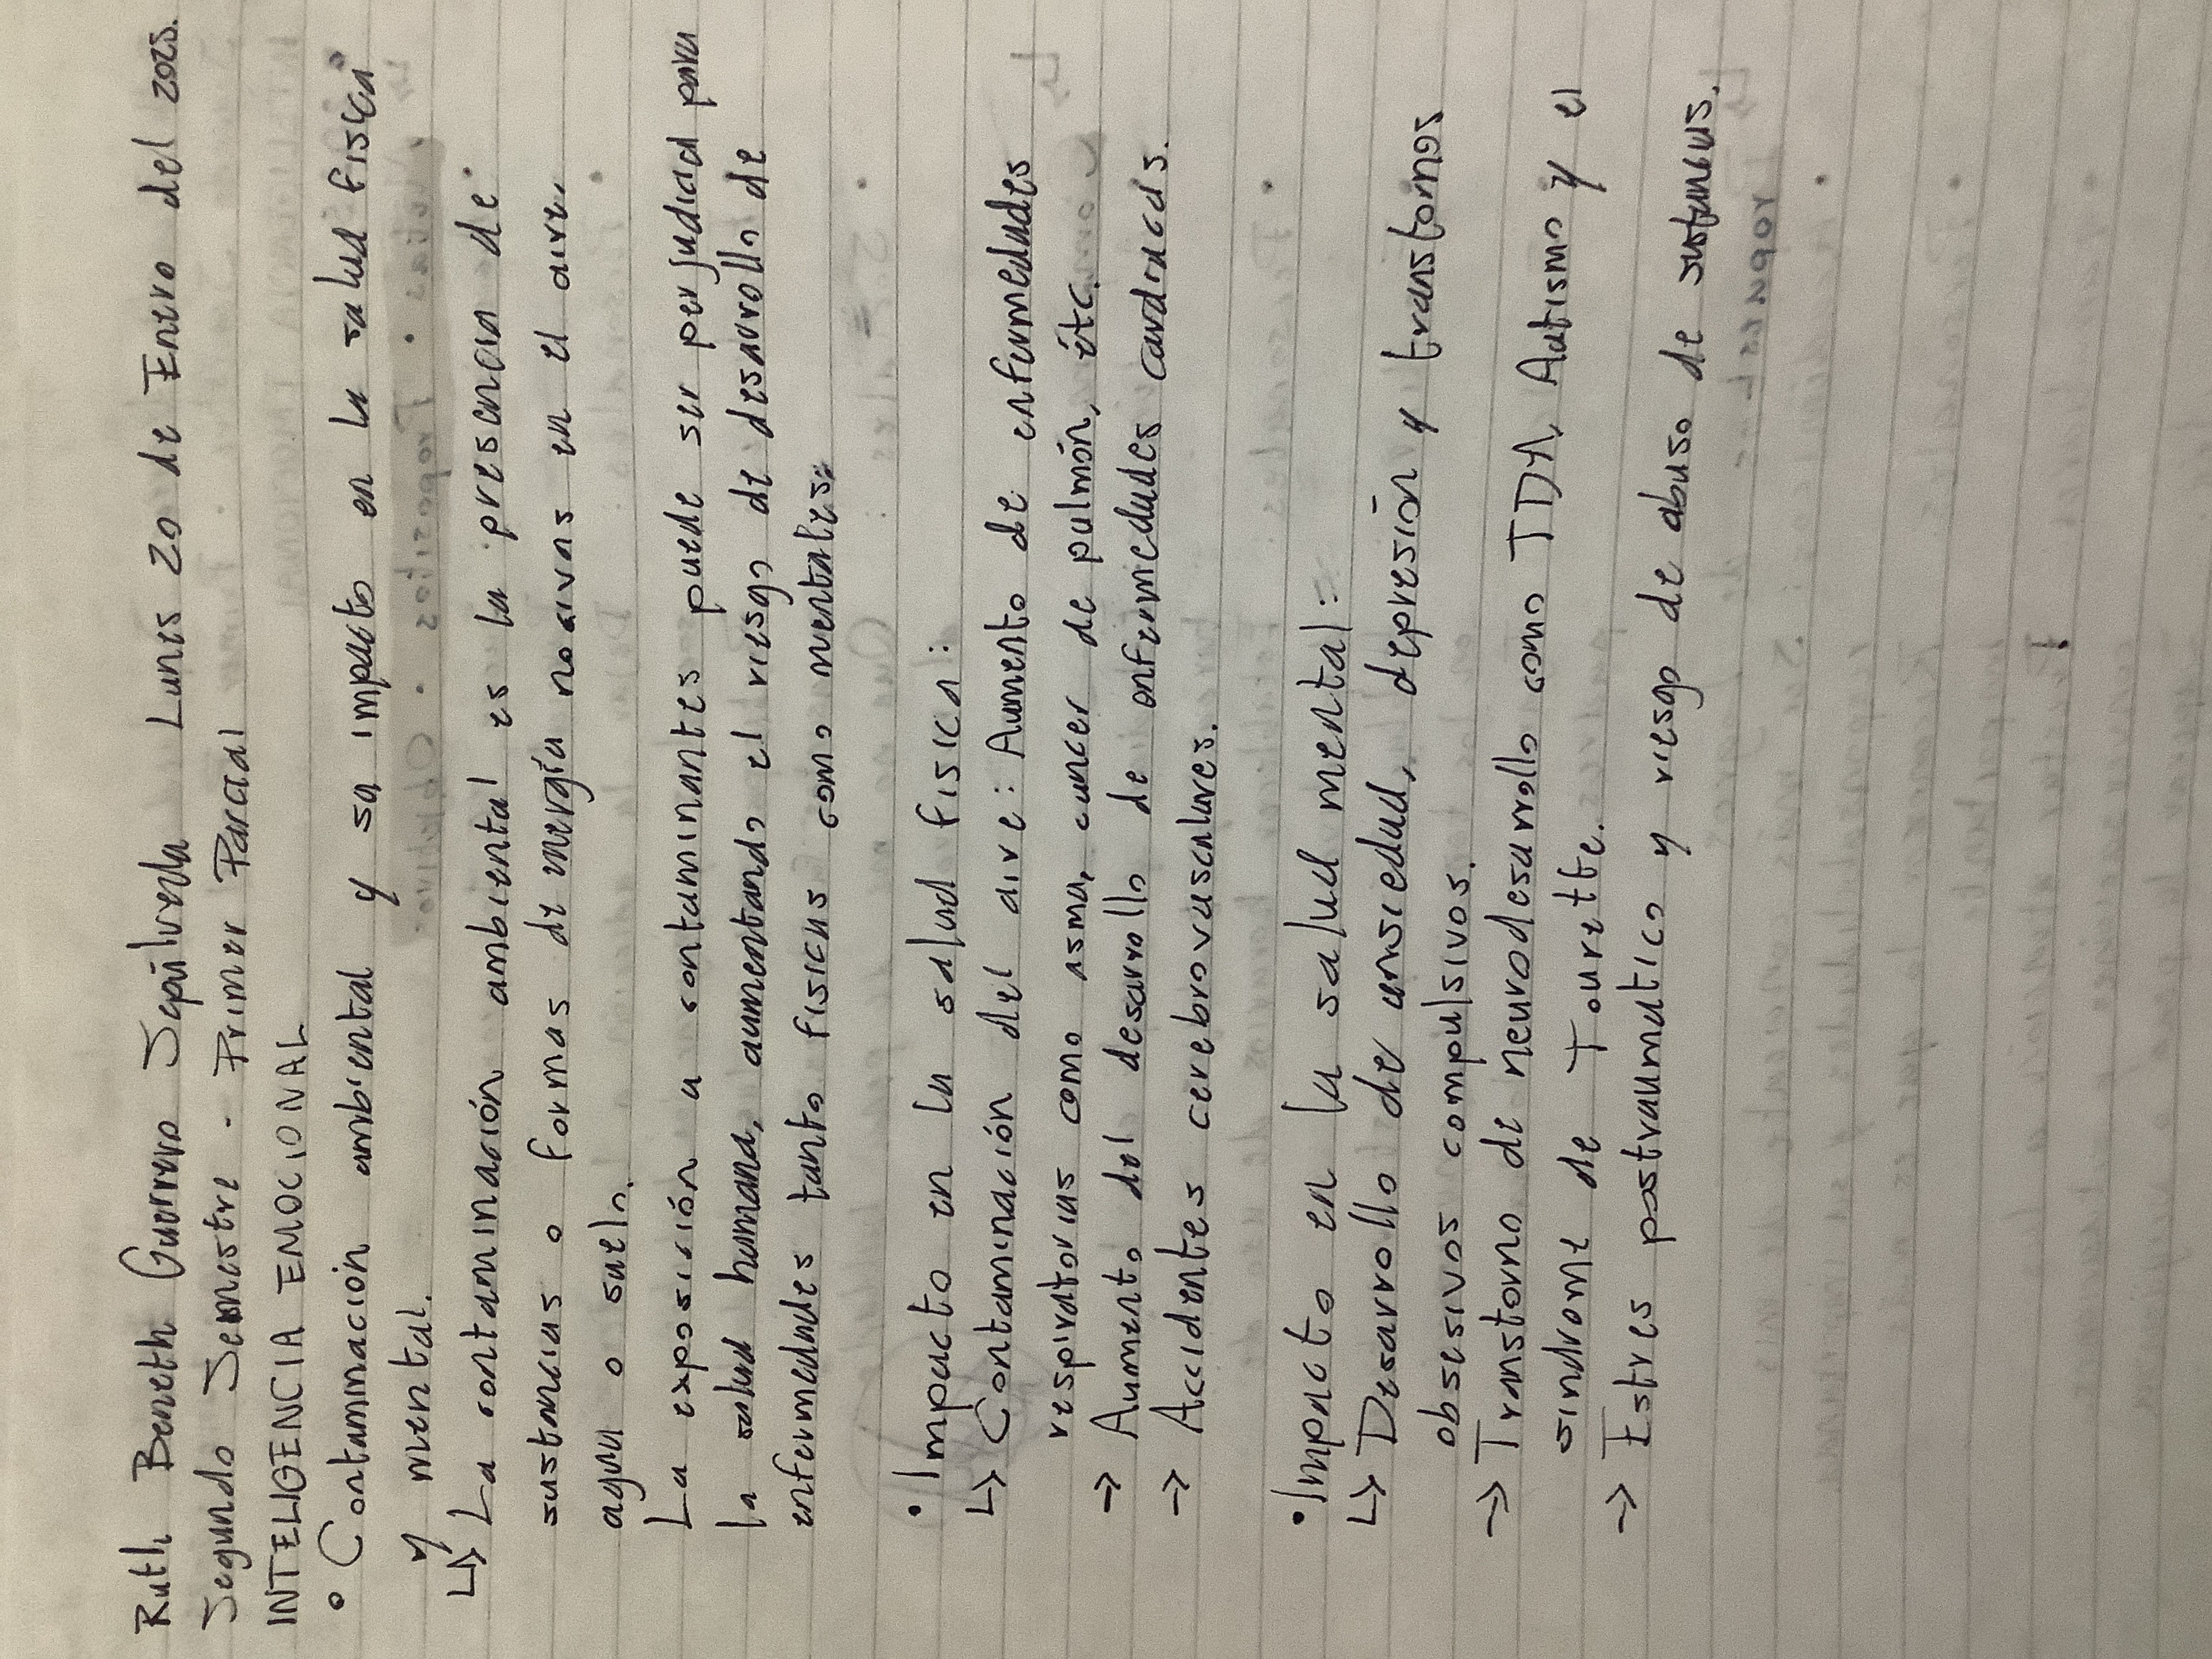 Ruth Beneth Guerrero Sepúlveda Lunes 20 de Enero del 2025.
Segundo Semestre - Primer Parcial
INTELIGENCIA EMOCIONAL
• Contaminación ambiental y su impacto en la salud física
y mental.
↳ La contaminación ambiental es la presencia de
sustancias o formas de energía nocivas en el aire,
agua o suelo.
La exposición a contaminantes puede ser perjudicial para
la salud humana, aumentando el riesgo de desarrollo de
enfermedades tanto físicas como mentales.
• Impacto en la salud física:
↳ Contaminación del aire: Aumento de enfermedades
respiratorias como asma, cancer de pulmón, étc.
→ Aumento del desarrollo de enfermedades cardiacas.
→ Accidentes cerebrovasculares.
• Impacto en la salud mental:
↳ Desarrollo de ansiedad, depresión y transtornos
obsesivos compulsivos.
→ Transtorno de neurodesarrollo como TDA, Autismo y el
sindrome de Tourette.
→ Estres postraumatico y riesgo de abuso de sustancias.